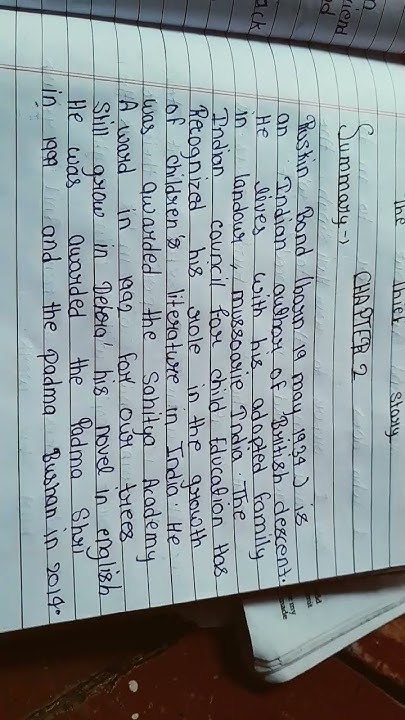 The Thick Story
CHAPTER 2
Summary-:
Ruskin Bond (born 19 may 1934) is
an Indian author of British descent.
He lives with his adopted family
in landour, mussoorie India. The
Indian council for child Education Has
Recognized his role in the growth
of children's literature in India. He
was awarded the Sahitya Academy
A word in 1992 for our trees
Still grow in Dehra' his novel in english
He was awarded the Padma Shri
in 1999 and the Padma Bushan in 2014.